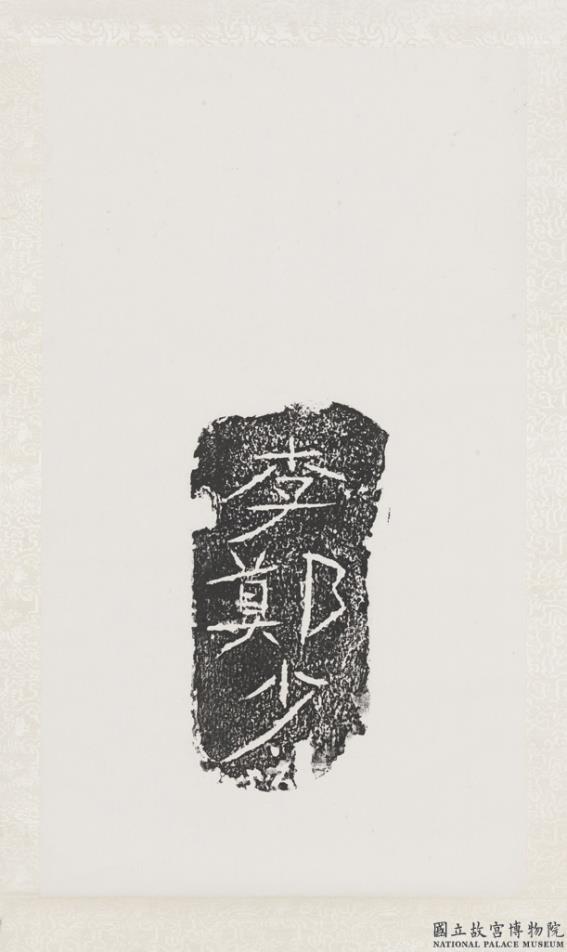 李鄭少
國立故宮博物院
NATIONAL PALACE MUSEUM